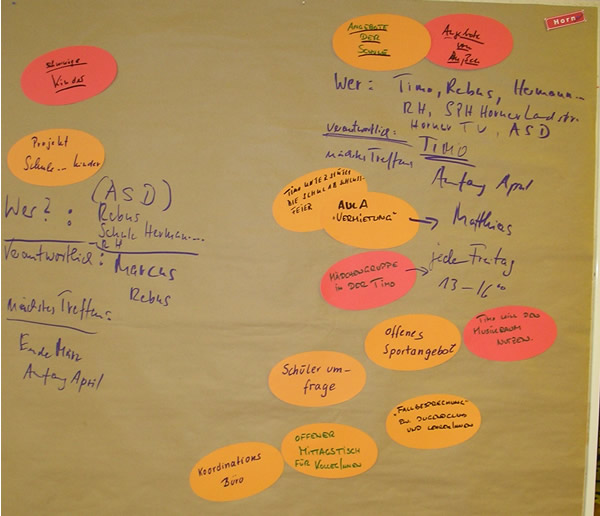 Horn
schwierige
Kinder
Projekt
Schule... Kinder
Wer? :
(ASD)
Rebus
Schule Hermann....
RH
Verantwortlich : Marcus
Rebus
Nächstes Treffen:
Ende März
Anfang April
ANGEBOTE
DER
SCHULE
Angebote
von
Wer : Timo, Rebus, Hermann...
RH, SPH Horner Landstr.
Horner TV, ASD
Verantwortlich: TIMO
Nächstes Treffen Anfang April
TIMO UNTERSTÜTZT
DIE SCHULABSCHLUSS-
FEIER
AULA
"VERMIETUNG"
Matthias
MÄDCHENGRUPPE
IN DER TIMO
jede Freitag
13-16⁰⁰
Offenes
Sportangebot
TIMO WILL DEN
MUSIKRAUM
NUTZEN.
Schüler um-
frage
"FALLBESPRECHUNG"
IM JUGENDCLUB
UND LEHRERINNEN
OFFENER
MITTAGSTISCH
FÜR KOLLEGINNEN
Koordinations
Büro